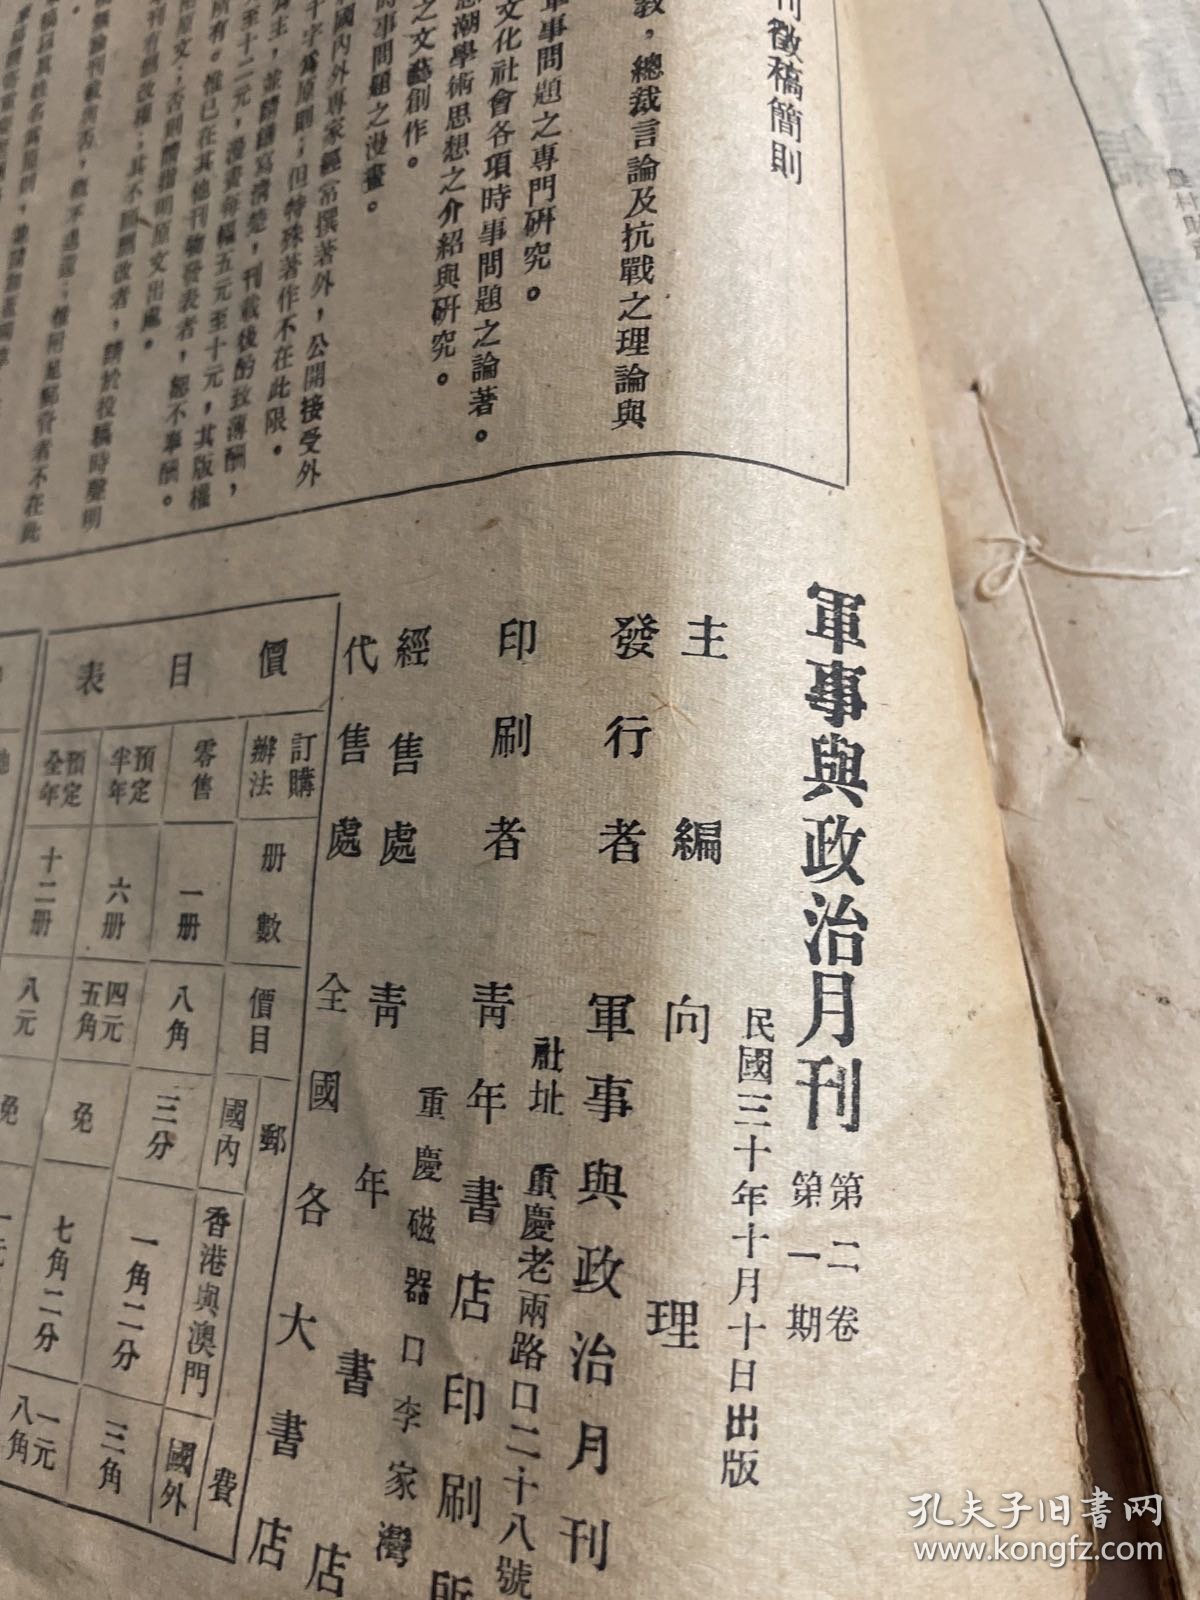 刊徵稿簡則
教，總裁言論及抗戰之理論與
軍事問題之專門研究。
文化社會各項時事問題之論著。
思潮學術思想之介紹與研究。
之文藝創作。
時事問題之漫畫。
國內外專家經常撰著外，公開接受外
千字為原則；但特殊著作不在此限。
為主，並請繕寫清楚，刊載後酌致薄酬，
至十二元，漫畫每幅五元至十元，其版權
所有。惟已在其他刊物發表者，恕不奉酬。
原文；否則請指明原文出處。
刊有刪改權；其不願刪改者，請於投稿時聲明
稿無論刊載與否，概不退還；惟附足郵資者不在此
軍事與政治月刊
第二卷
第一期
民國三十年十月十日出版
主編 向理
發行者 軍事與政治月刊
社址 重慶老兩路口二十八號
印刷者 青年書店印刷所
重慶磁器口李家灣
經售處 青年書店
代售處 全國各大書店
價目表
訂購辦法 冊數 價目 郵費
國內 香港與澳門 國外
零售 一冊 八角 三分 一角二分 三角
預定半年 六冊 四元五角 免 七角二分 一元八角
預定全年 十二冊 八元 免
孔夫子旧书网
www.kongfz.com